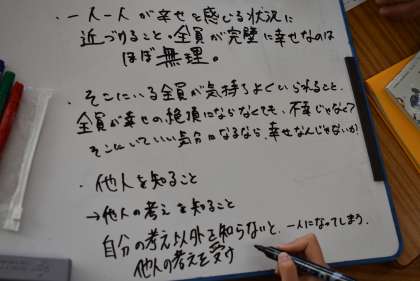 ・一人一人が幸せを感じる状況に
近づけること・全員が完璧に幸せなのは
ほぼ無理。
・そこにいる全員が気持ちよくいられること、
全員が幸せの絶頂にならなくても、不幸じゃなくて
そこにいていい気分になるなら、幸せなんじゃないか？
・他人を知ること
→他人の考えを知ること
自分の考え以外を知らないと、一人になってしまう。
他人の考えを受け